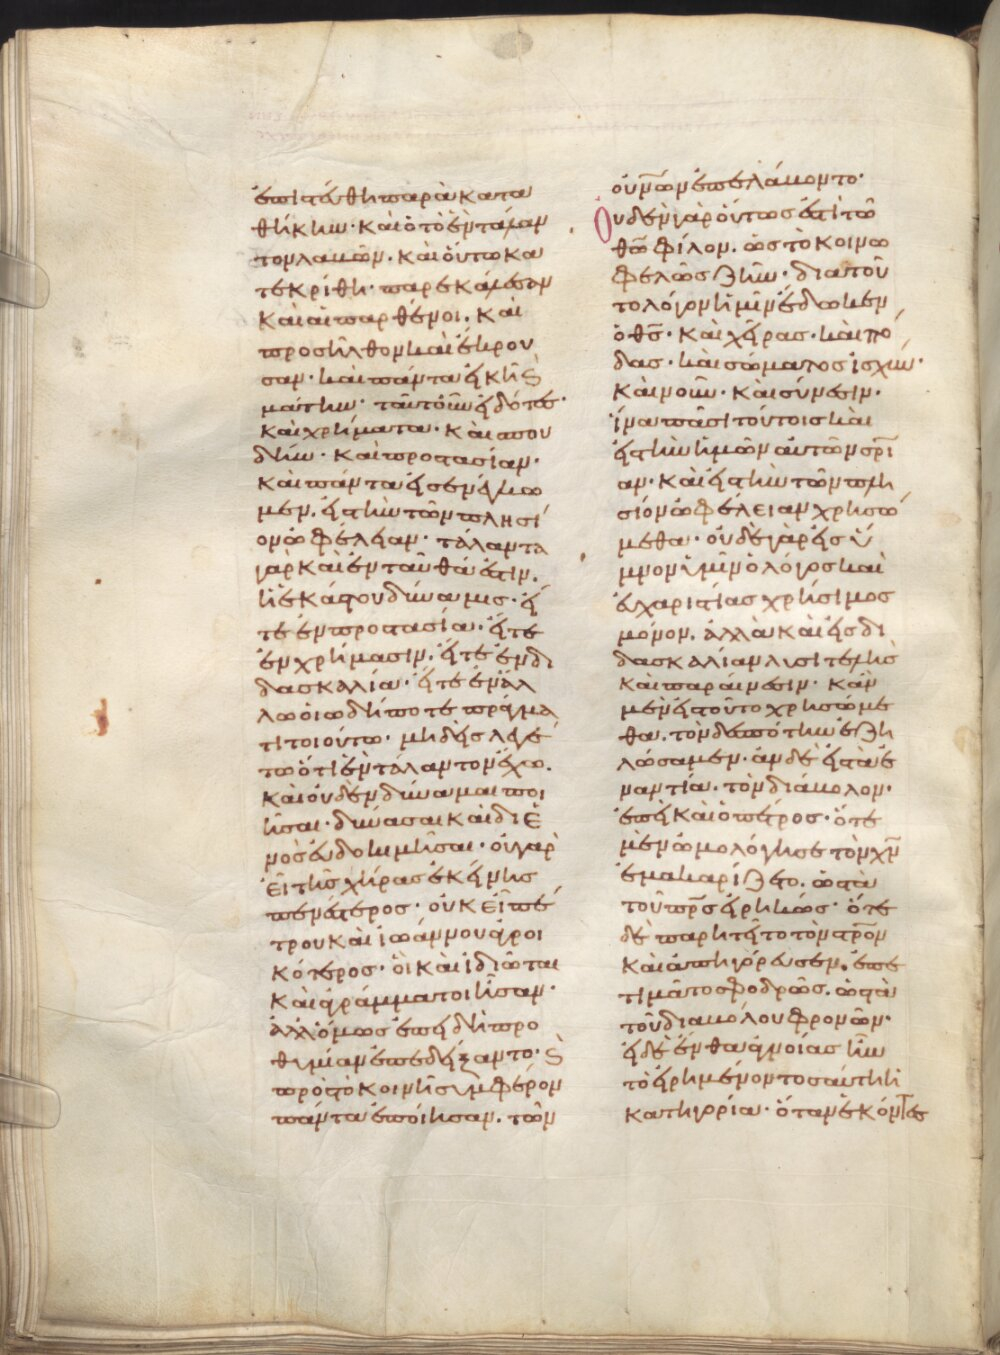 ἐπιτεύθη παρὰ κατα
θήκην· καὶ ὁ τὸ ἓν τάλαν
τον λαβών· καὶ οὕτω κα
τεκρίθη· παρεκάλεσαν
καὶ αἱ παρθένοι. καὶ
προσῆλθον καὶ ἔκρου
σαν· καὶ πάντα εἰκῆ ϗ
μάτην· ταῦτ οὖν εἰδότες·
καὶ χρήματα· καὶ σπου
δὴν· καὶ προστασίαν·
καὶ πάντα εἰσενέγκω
μεν, εἰς τὴν τῶν πλησί
ον ὠφέλειαν· τάλαντα
γὰρ καὶ ἐνταῦθά ἐστιν.
ἡ ἑκάστου δύναμις· εἴ
τε ἐν προστασία· εἴτε
ἐν χρήμασιν. εἴτε ἐν δι
δασκαλία· εἴτε ἐν ἄλ
λω οἱωδήποτε πράγμα
τι τοιούτω· μηδεὶς λεγέ
τω ὅτι ἓν τάλαντον ἔχω.
καὶ οὐδὲν δύναμαι ποι
ῆσαι· δύνασαι καὶ δι ἑ
νὸς εὐδοκιμῆσαι· οὐ γὰρ
εἶ τῆς χήρας ἐκείνης
πενέστερος· οὐκ εἶ πέ
τρου καὶ ἰωάννου ἀγροι
κότερος· οἳ καὶ ἰδιῶται
καὶ ἀγράμματοι ἦσαν·
ἀλλ ὅμως ἐπειδὴ προ
θυμίαν ἐπεδείξαντο· ϗ
πρὸς τὸ κοινῆ συμφέρον
πάντα ἐποίησαν. τῶν
οὐνῶν ἐπελάβοντο·
Οὐδὲν γὰρ οὕτως ἐστὶ τῶ
θῶ φίλον. ὡς τὸ κοινω
φελῶς ζῆν· διὰ τοῦ
το λόγον ἡμῖν ἔδωκεν
ὁ θς· καὶ χεῖρας· καὶ πό
δας· καὶ σώματος ἰσχύν·
καὶ νοῦν· καὶ σύνεσιν·
ἵνα πᾶσι τούτοις καὶ
εἰς τὴν ἡμῶν αὐτῶν σρί
αν· καὶ εἰς τὴν τῶν πλη
σίον ὠφέλειαν χρησώ
μεθα· οὐδὲ γὰρ εἰς ὕ
μνον ὑμῖν ὁ λόγος καὶ
εὐχαριστίας χρήσιμος
μόνον, ἀλλὰ καὶ εἰς δι
δασκαλίαν λυσιτελὴς
καὶ παραίνεσιν· κἂν
μὲν εἰς τοῦτο χρησώμε
θα. τὸν δεσπότην ἐζη
λώσαμεν· ἂν δὲ εἰς τὰ ἐ
ναντία. τὸν διάβολον·
ἐπεὶ καὶ ὁ πέτρος· ὅτε
μὲν ὡμολόγησε τὸν χν
ἐμακαρίζετο. ὡς τὰ
τοῦ πρς εἰρηκώς· ὅτε
δὲ παρητεῖτο τὸν στρον
καὶ ἀπηγόρευσεν. ἐπε
τιμᾶτο σφοδρῶς. ὡς τὰ
τοῦ διαβόλου φρονῶν·
εἰ δὲ ἔνθα ἀγνοίας ἦν
τὸ εἰρημένον τοσαύτη ἡ
κατηγορία· ὅταν ἑκόντες